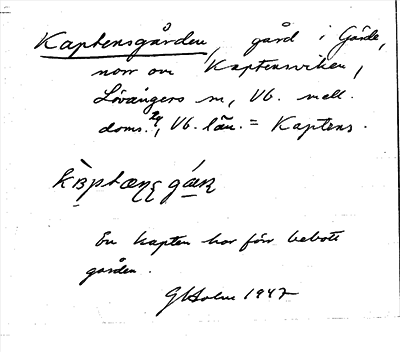 Kaptensgården, gård i Gärde,
norr om Kaptensviken,
Lövångers sn, Vb. mell.
doms., Vb. län. = Kaptens.
En kapten har förr bebott
gården.
GHolm 1947